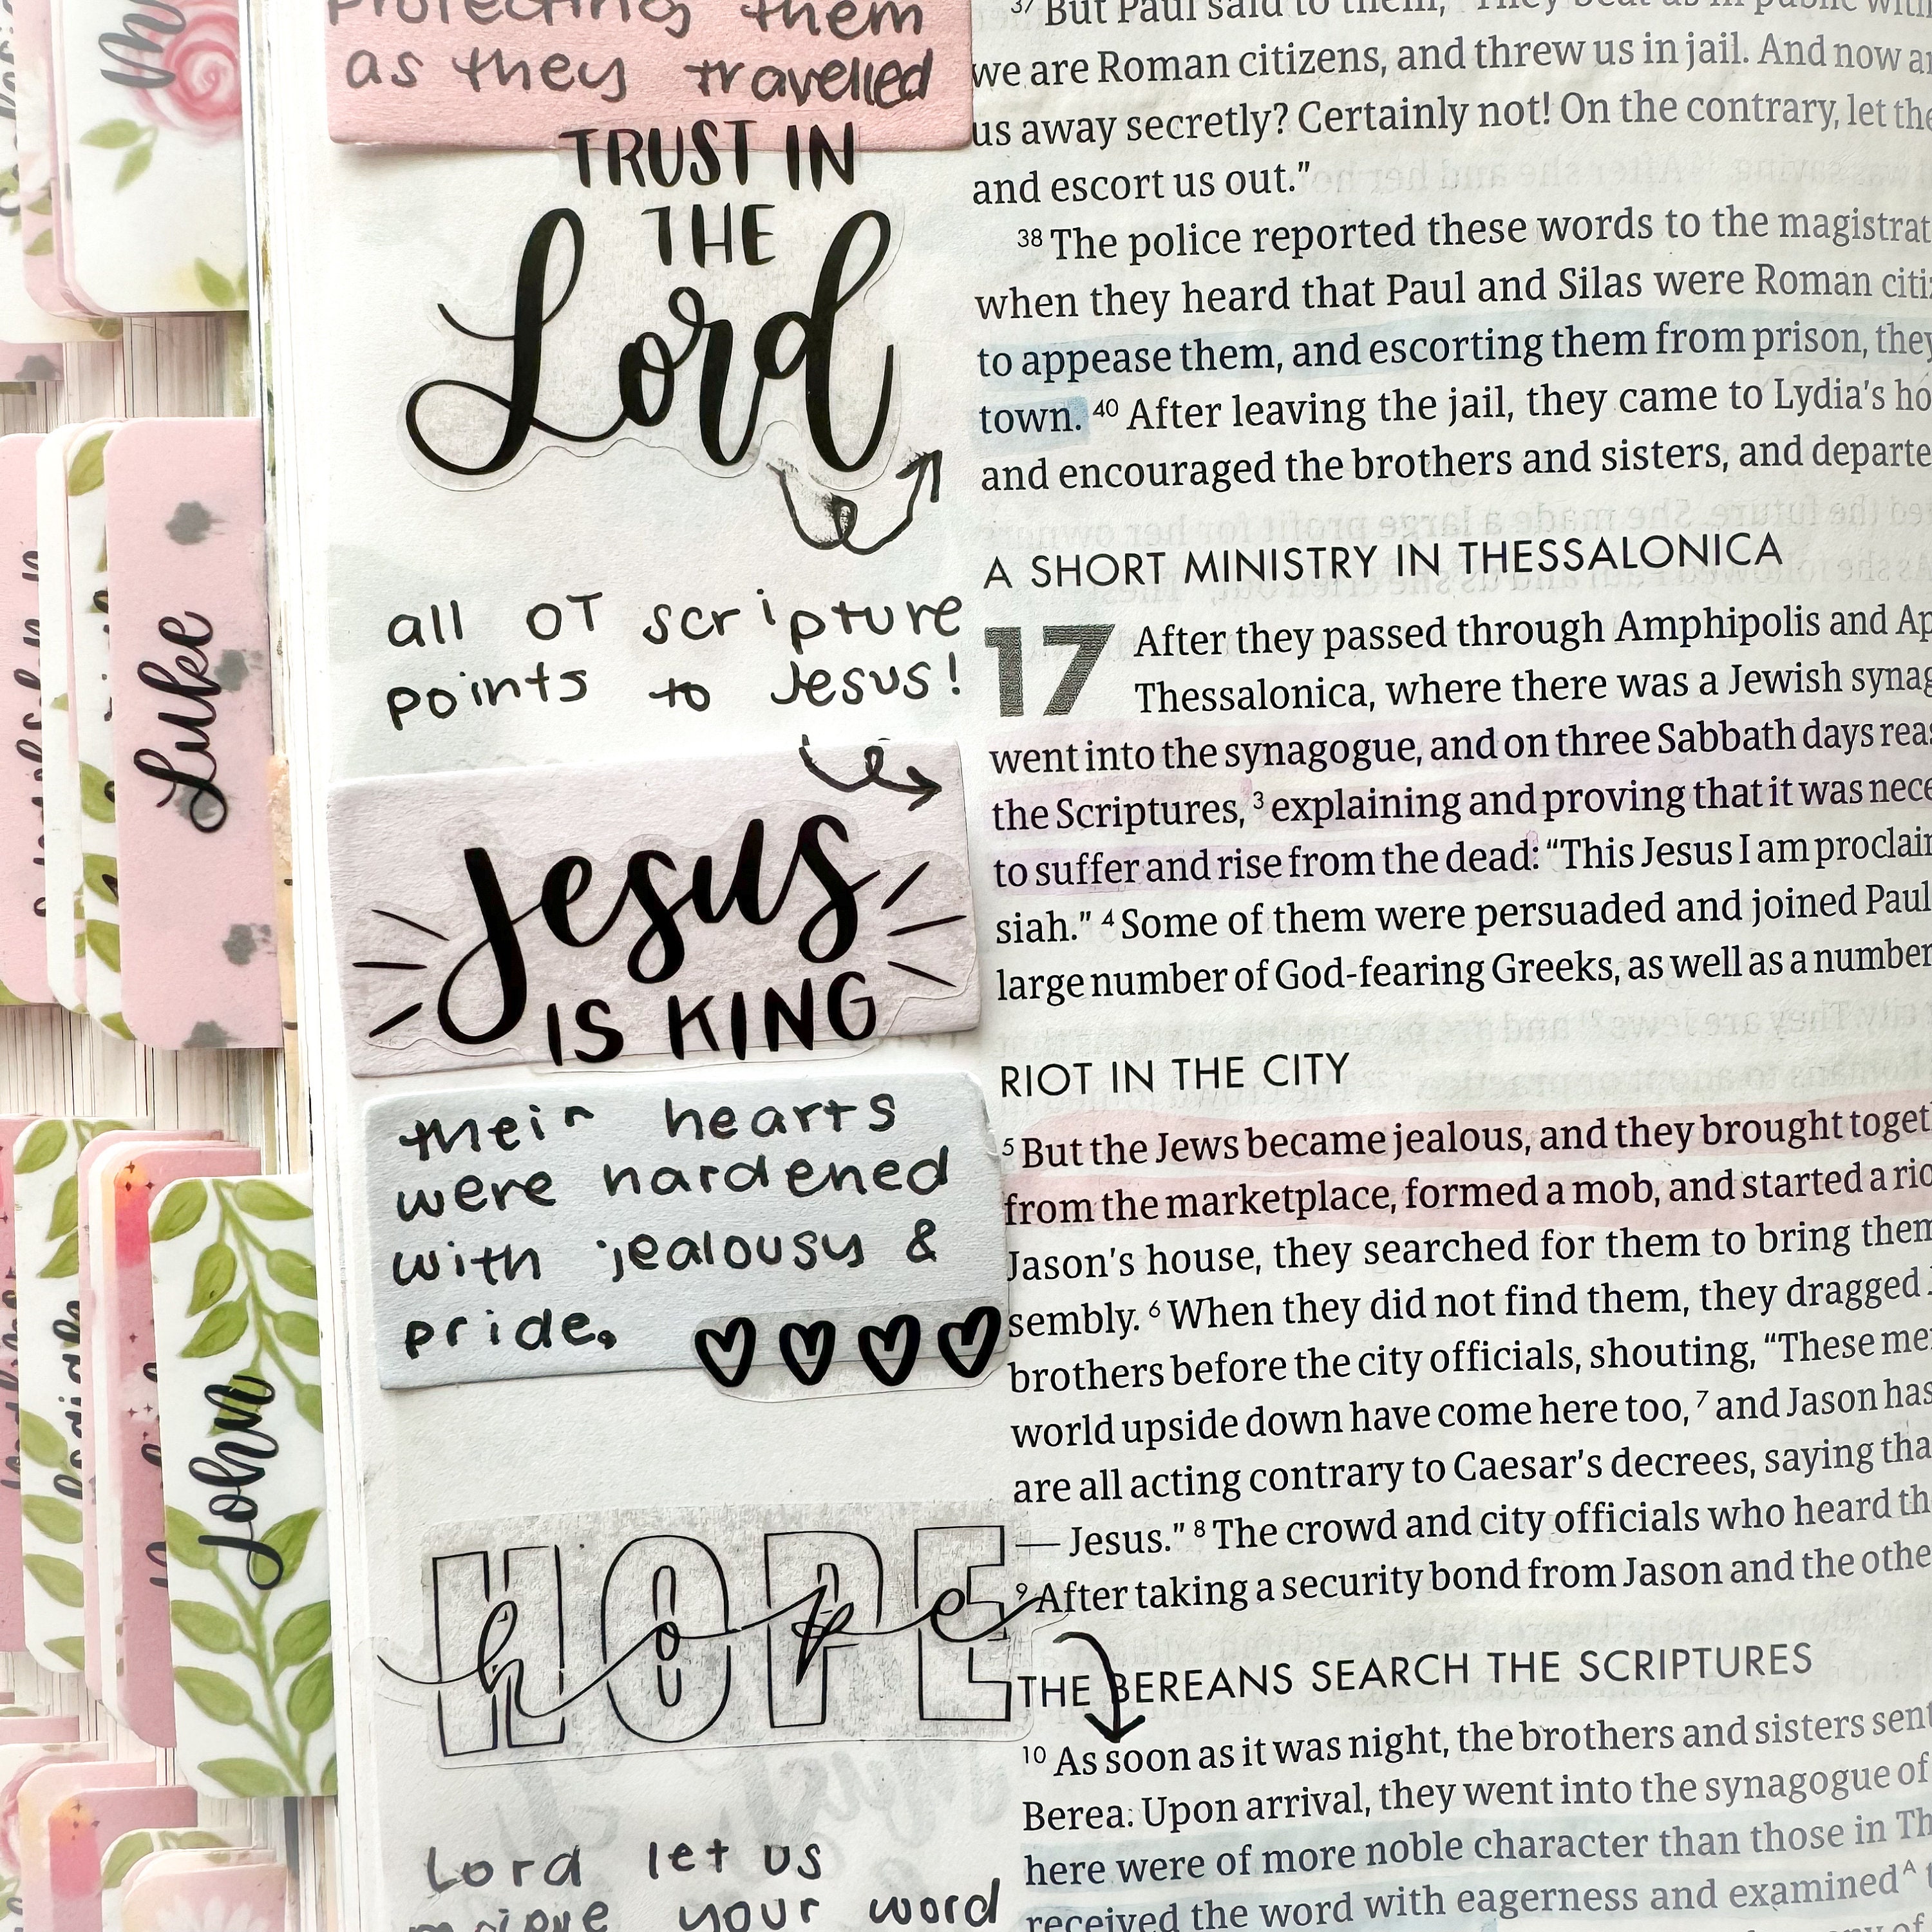 Protecting them
as they travelled
TRUST IN
THE
Lord
all OT scripture
points to Jesus!
Jesus
IS KING
their hearts
were hardened
with jealousy &
pride.
HOPE
hope
Lord let us
your word
37 But Paul said to them,
we are Roman citizens, and threw us in jail. And now
us away secretly? Certainly not! On the contrary, let
and escort us out.”
38 The police reported these words to the
when they heard that Paul and Silas were Roman
to appease them, and escorting them from prison, they
town. 40 After leaving the jail, they came to Lydia's
and encouraged the brothers and sisters, and
A SHORT MINISTRY IN THESSALONICA
17 After they passed through Amphipolis and
Thessalonica, where there was a Jewish
went into the synagogue, and on three Sabbath days
the Scriptures, 3 explaining and proving that it was
to suffer and rise from the dead: “This Jesus I am
siah.” 4 Some of them were persuaded and joined Paul
large number of God-fearing Greeks, as well as a number
RIOT IN THE CITY
5 But the Jews became jealous, and they brought
from the marketplace, formed a mob, and started a
Jason's house, they searched for them to bring them
sembly. 6 When they did not find them, they dragged
brothers before the city officials, shouting, “These
world upside down have come here too, 7 and Jason has
are all acting contrary to Caesar's decrees, saying
— Jesus.” 8 The crowd and city officials who heard
9 After taking a security bond from Jason and the
THE BEREANS SEARCH THE SCRIPTURES
10 As soon as it was night, the brothers and sisters sent
Berea. Upon arrival, they went into the synagogue of
here were of more noble character than those in
received the word with eagerness and examined A
Luke
John